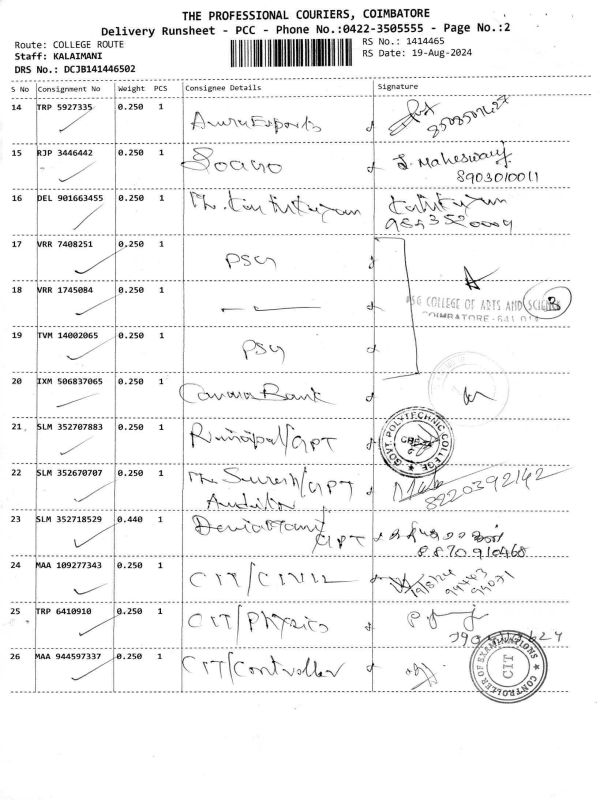 THE PROFESSIONAL COURIERS, COIMBATORE
Delivery Runsheet - PCC - Phone No.:0422-3505555 - Page No.:2
Route: COLLEGE ROUTE
RS No.: 1414465
Staff: KALAIMANI
RS Date: 19-Aug-2024
DRS No.: DCJB141446502
S No Consignment No Weight PCS Consignee Details Signature
14 TRP 5927335 0.250 1
15 RJP 3446442 0.250 1 S. Maheswary
8903010011
16 DEL 901663455 0.250 1
17 VRR 7408251 0.250 1 PSG
18 VRR 1745084 0.250 1
PSG COLLEGE OF ARTS AND SCIENCE
COIMBATORE-641 014
19 TVM 14002065 0.250 1 PSG
20 IXM 506837065 0.250 1 Canara Bank
21 SLM 352707883 0.250 1 Principal/GPT
GOVT. POLYTECHNIC COLLEGE
22 SLM 352670707 0.250 1 GPT
8220392142
23 SLM 352718529 0.440 1
GPT 8870910468
24 MAA 109277343 0.250 1 CIT/CIVIL 19/8/24
25 TRP 6410910 0.250 1 CIT/Physics
26 MAA 944597337 0.250 1 CIT/Controller
CONTROLLER OF EXAMINATIONS
CIT